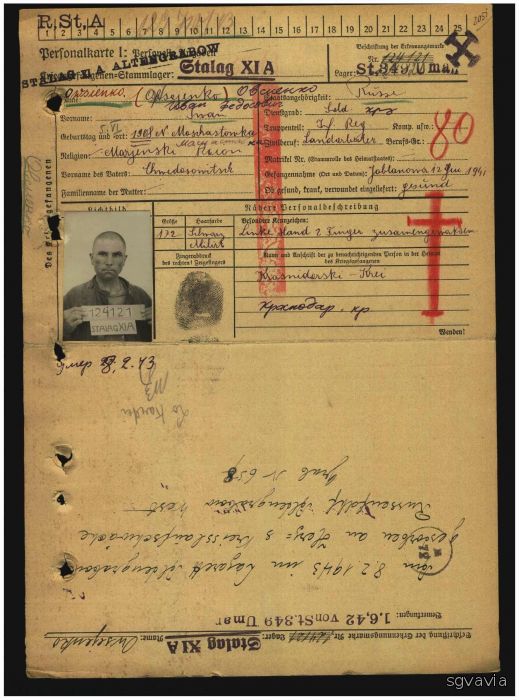 R.St.A
1 2 3 4 5 6 7 8 9 10 11 12 13 14 15 16 17 18 19 20 21 22 23 24 25
Personalkarte I: Personelle
Beschriftung der Erkennungsmarke
STALAG XI A ALTENGRABOW
Nr. 124121
Kriegsgefangenen-Stammlager: Stalag XI A
Lager: St. 349 Uman
Des Kriegsgefangenen
Name: Opsienko, (Opsejenko) Овсиенко
Staatsangehörigkeit: Russe
Иван Федосович
Vorname: Iwan
Dienstgrad: Sold.
Truppenteil: Inf. Reg. Komp. usw.:
80
5.VI
Geburtstag und -ort: 1908
Zivilberuf: Landarbeiter Berufs-Gr.:
Religion:
Matrikel Nr. (Stammrolle des Heimatstaates):
Vorname des Vaters:
Gefangennahme (Ort und Datum): 1941
Familienname der Mutter:
Ob gesund, krank, verwundet eingeliefert: gesund
Lichtbild
Nähere Personalbeschreibung
Größe
Haarfarbe
Besondere Kennzeichen:
172
Schwarz
Linke Hand 2 Finger zusammengewachsen
Fingerabdruck
des rechten! Zeigefingers
Name und Anschrift der zu benachrichtigenden Person in der Heimat
des Kriegsgefangenen
Krasnidarski-Krei
Краснодар. кр
124121
STALAG XI A
Wenden!
умер 8.2.43
Am 8.2.1943 im Lazarett Altengrabow
gestorben an Herz- & Kreislaufschwäche
Russenfriedhof Altengrabow West
Grab N 658
Bemerkungen:
1.6.42 von St. 349 Uman
Beschriftung der Erkennungsmarke Nr. 124121 Lager: Stalag XI A Name:
sgvavia